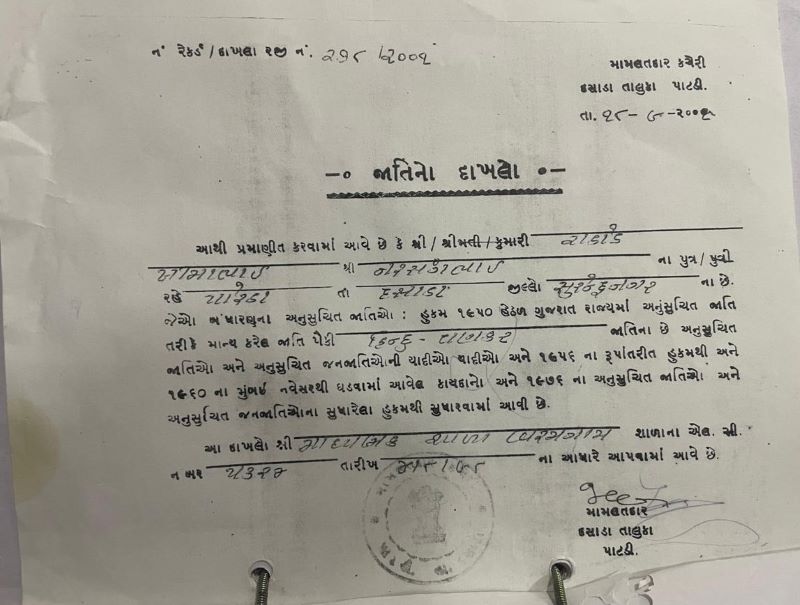 નં રેકર્ડ / દાખલા રજી નં. ૨૭૮ / ૨૦૦૧
મામલતદાર કચેરી
દસાડા તાલુકા પાટડી.
તા. ૧૮ - ૭ - ૨૦૦૧
—૦ જાતિનો દાખલો ૦—
આથી પ્રમાણીત કરવામાં આવે છે કે શ્રી / શ્રીમતી / કુમારી રાઠોડ
ખીમાભાઈ શ્રી નરસંગભાઈ ના પુત્ર / પુત્રી
રહે તા દસાડા જીલ્લો સુરેન્દ્રનગર ના છે.
જેઓ બંધારણના અનુસુચિત જાતિઓ : હુકમ ૧૯૫૦ હેઠળ ગુજરાત રાજ્યમાં અનુસુચિત જાતિ
તરીકે માન્ય કરેલ જાતિ પૈકી હિન્દુ - વણકર જાતિના છે અનુસુચિત
જાતિઓ અને અનુસુચિત જનજાતિઓની યાદીઓ યાદીઓ અને ૧૯૫૬ ના રૂપાંતરીત હુકમથી અને
૧૯૬૦ ના મુંબઈ નવેસરથી ઘડવામાં આવેલ કાયદાનો અને ૧૯૭૬ ના અનુસુચિત જાતિઓ અને
અનુસુચિત જનજાતિઓના સુધારેલા હુકમથી સુધારવામાં આવી છે.
આ દાખલો શ્રી માધ્યમિક શાળા વિરમગામ શાળાના એલ. સી.
નંબર તારીખ ના આધારે આપવામાં આવે છે.
મામલતદાર
દસાડા તાલુકા
પાટડી.